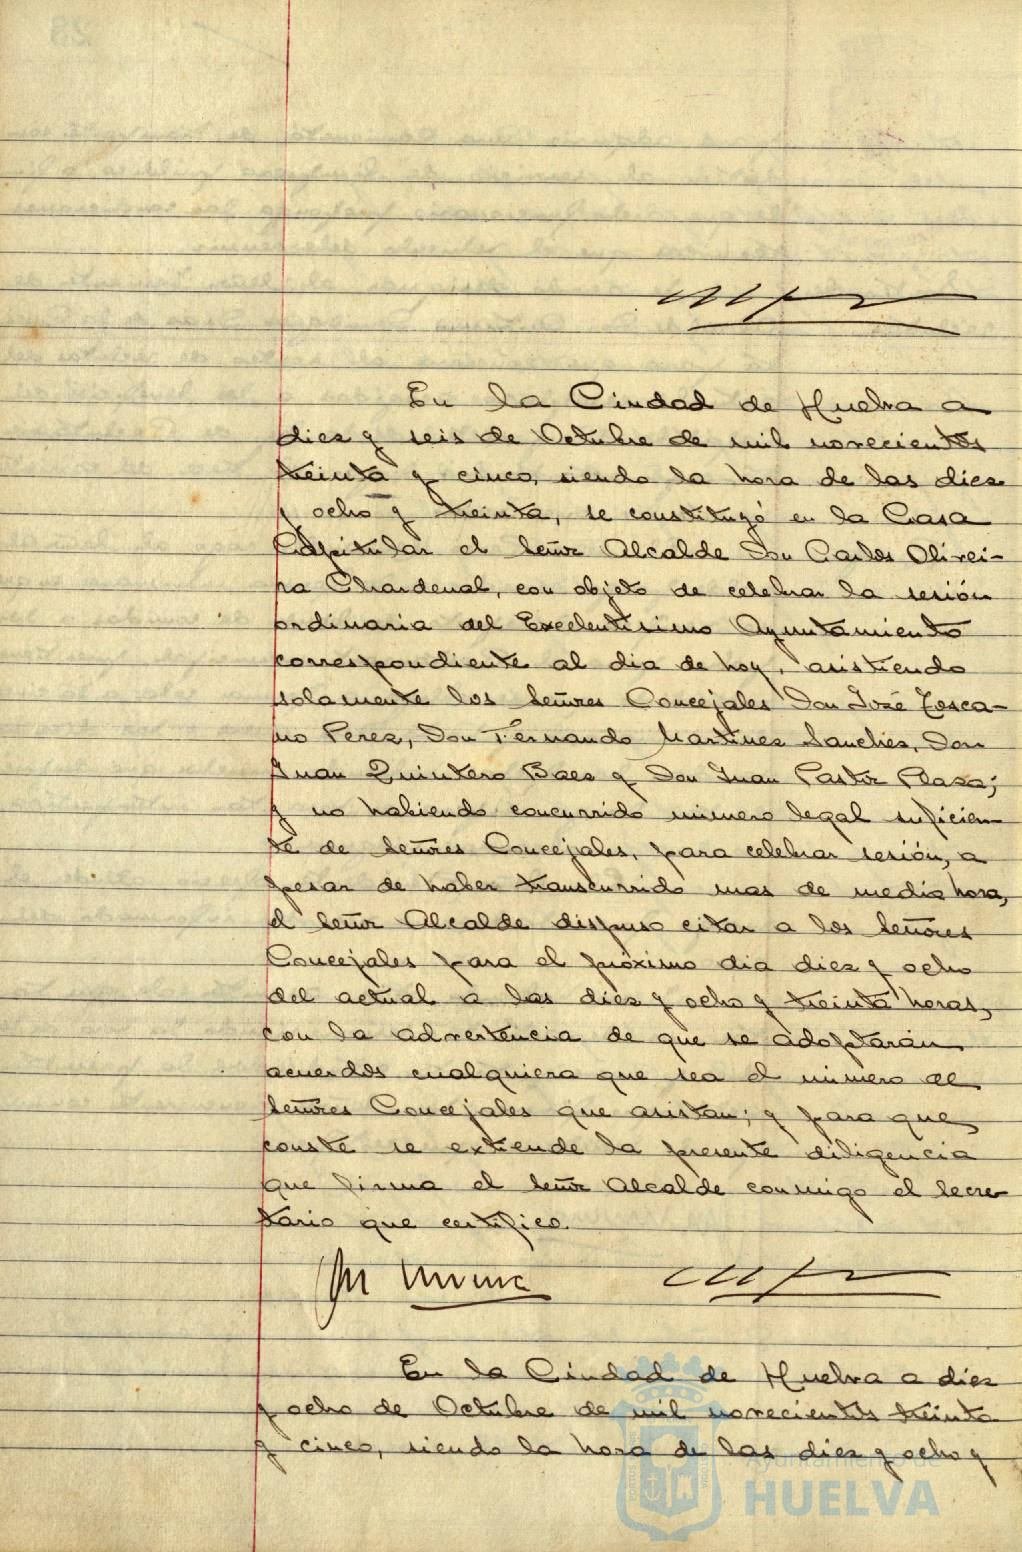 En la Ciudad de Huelva a
diez y seis de Octubre de mil novecientos
treinta y cinco, siendo la hora de las diez
y ocho y treinta, se constituyó en la Casa
Capitular el Señor Alcalde Don Carlos Olivei-
ra Chardenal, con objeto de celebrar la sesión
ordinaria del Excelentísimo Ayuntamiento
correspondiente al dia de hoy, asistiendo
solamente los Señores Concejales Don José Tosca-
no Perez, Don Fernando Martinez Sanchez, Don
Juan Quintero Baez y Don Juan Pastor Plaza;
y no habiendo concurrido número legal suficien-
te de Señores Concejales, para celebrar sesión, a
pesar de haber transcurrido mas de media hora,
el Señor Alcalde dispuso citar a los Señores
Concejales para el próximo dia diez y ocho
del actual a las diez y ocho y treinta horas,
con la advertencia de que se adoptarán
acuerdos cualquiera que sea el número de
Señores Concejales que asistan; y para que
conste se extiende la presente diligencia
que firma el Señor Alcalde conmigo el Secre-
tario que certifico.
En la Ciudad de Huelva a diez
y ocho de Octubre de mil novecientos treinta
y cinco, siendo la hora de las diez y ocho y
Ayuntamiento de
HUELVA